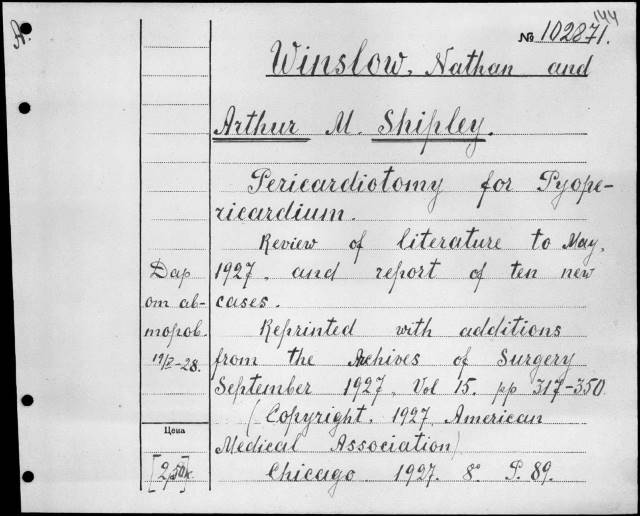 A.
144
№ 102871.
Winslow, Nathan and
Arthur M. Shipley.
Pericardiotomy for Pyope-
ricardium.
Review of literature to May,
1927, and report of ten new
cases.
Reprinted with additions
from the Archives of Surgery
September 1927, Vol 15. pp 317-350.
(Copyright. 1927, American
Medical Association)
Chicago 1927. 8° P. 89.
Дар
от ав-
торов.
19/I-28.
Цена
[2,50к.]